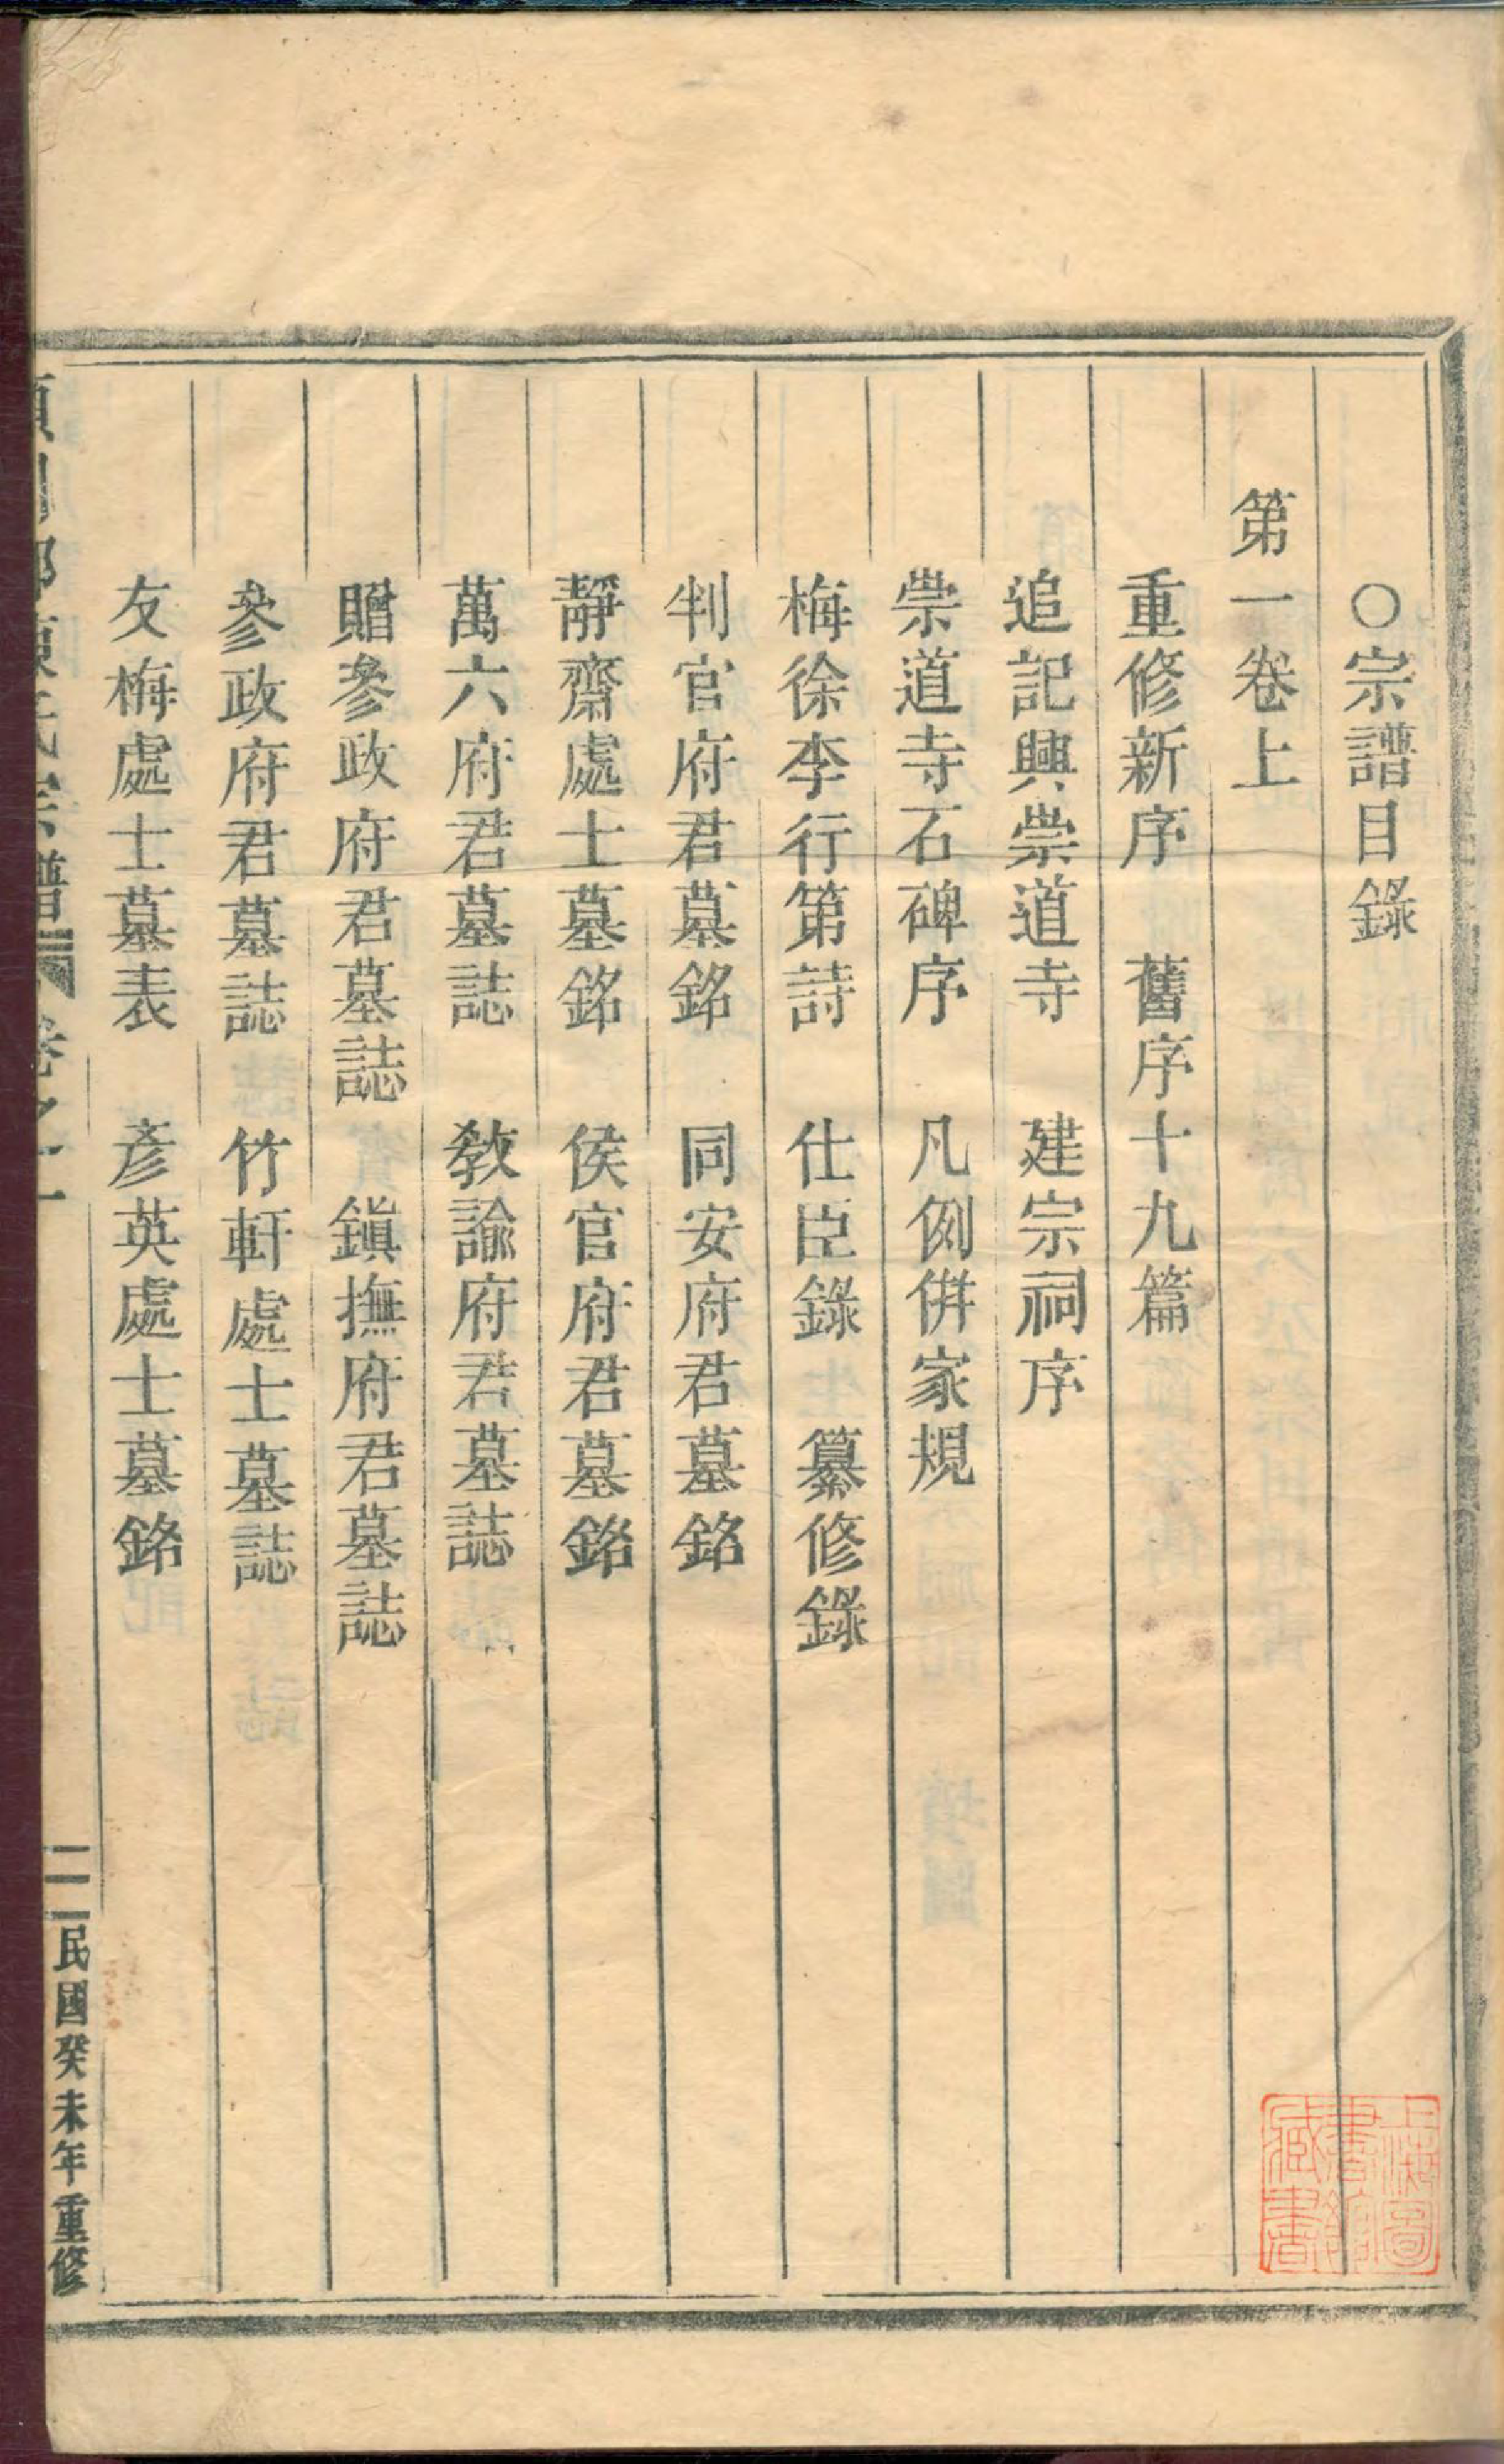 ○宗譜目錄
第一卷上
重修新序　舊序十九篇
追記興崇道寺　建宗祠序
崇道寺石碑序　凡例併家規
梅徐李行第詩　仕臣錄　纂修錄
判官府君墓銘　同安府君墓銘
靜齋處士墓銘　侯官府君墓銘
萬六府君墓誌　敎諭府君墓誌
贈參政府君墓誌　鎭撫府君墓誌
參政府君墓誌　竹軒處士墓誌
友梅處士墓表　彥英處士墓銘
民國癸未年重修
上海圖書館藏書